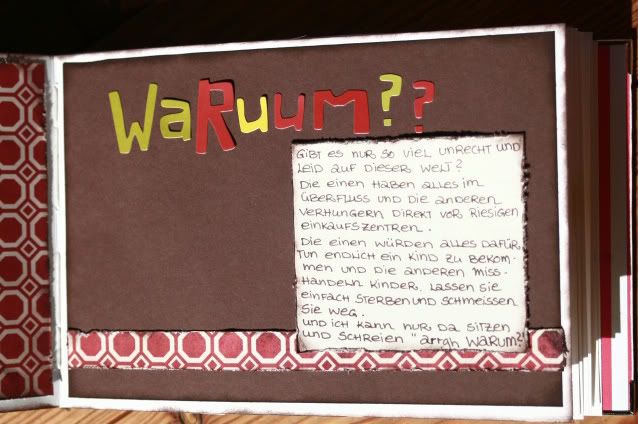 WaRuum??
GIBT ES NUR SO VIEL UNRECHT UND
LEID AUF DIESER WELT?
DIE EINEN HABEN ALLES IM
ÜBERFLUSS UND DIE ANDEREN
VERHUNGERN DIREKT VOR RIESIGEN
EINKAUFSZENTREN.
DIE EINEN WÜRDEN ALLES DAFÜR
TUN ENDLICH EIN KIND ZU BEKOM-
MEN UND DIE ANDEREN MISS-
HANDELN KINDER, LASSEN SIE
EINFACH STERBEN UND SCHMEISSEN
SIE WEG.
UND ICH KANN NUR DA SITZEN
UND SCHREIEN "arrgh WARUM?"